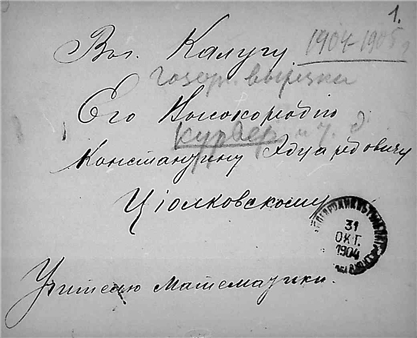 1.
Въ г. Калугу
1904-1905 г.
газет. вырезки
Его Высокородію
Курьер и т. д.
Константину Эдуардовичу
Ціолковскому
31
ОКТ.
1904
Учителю математики.